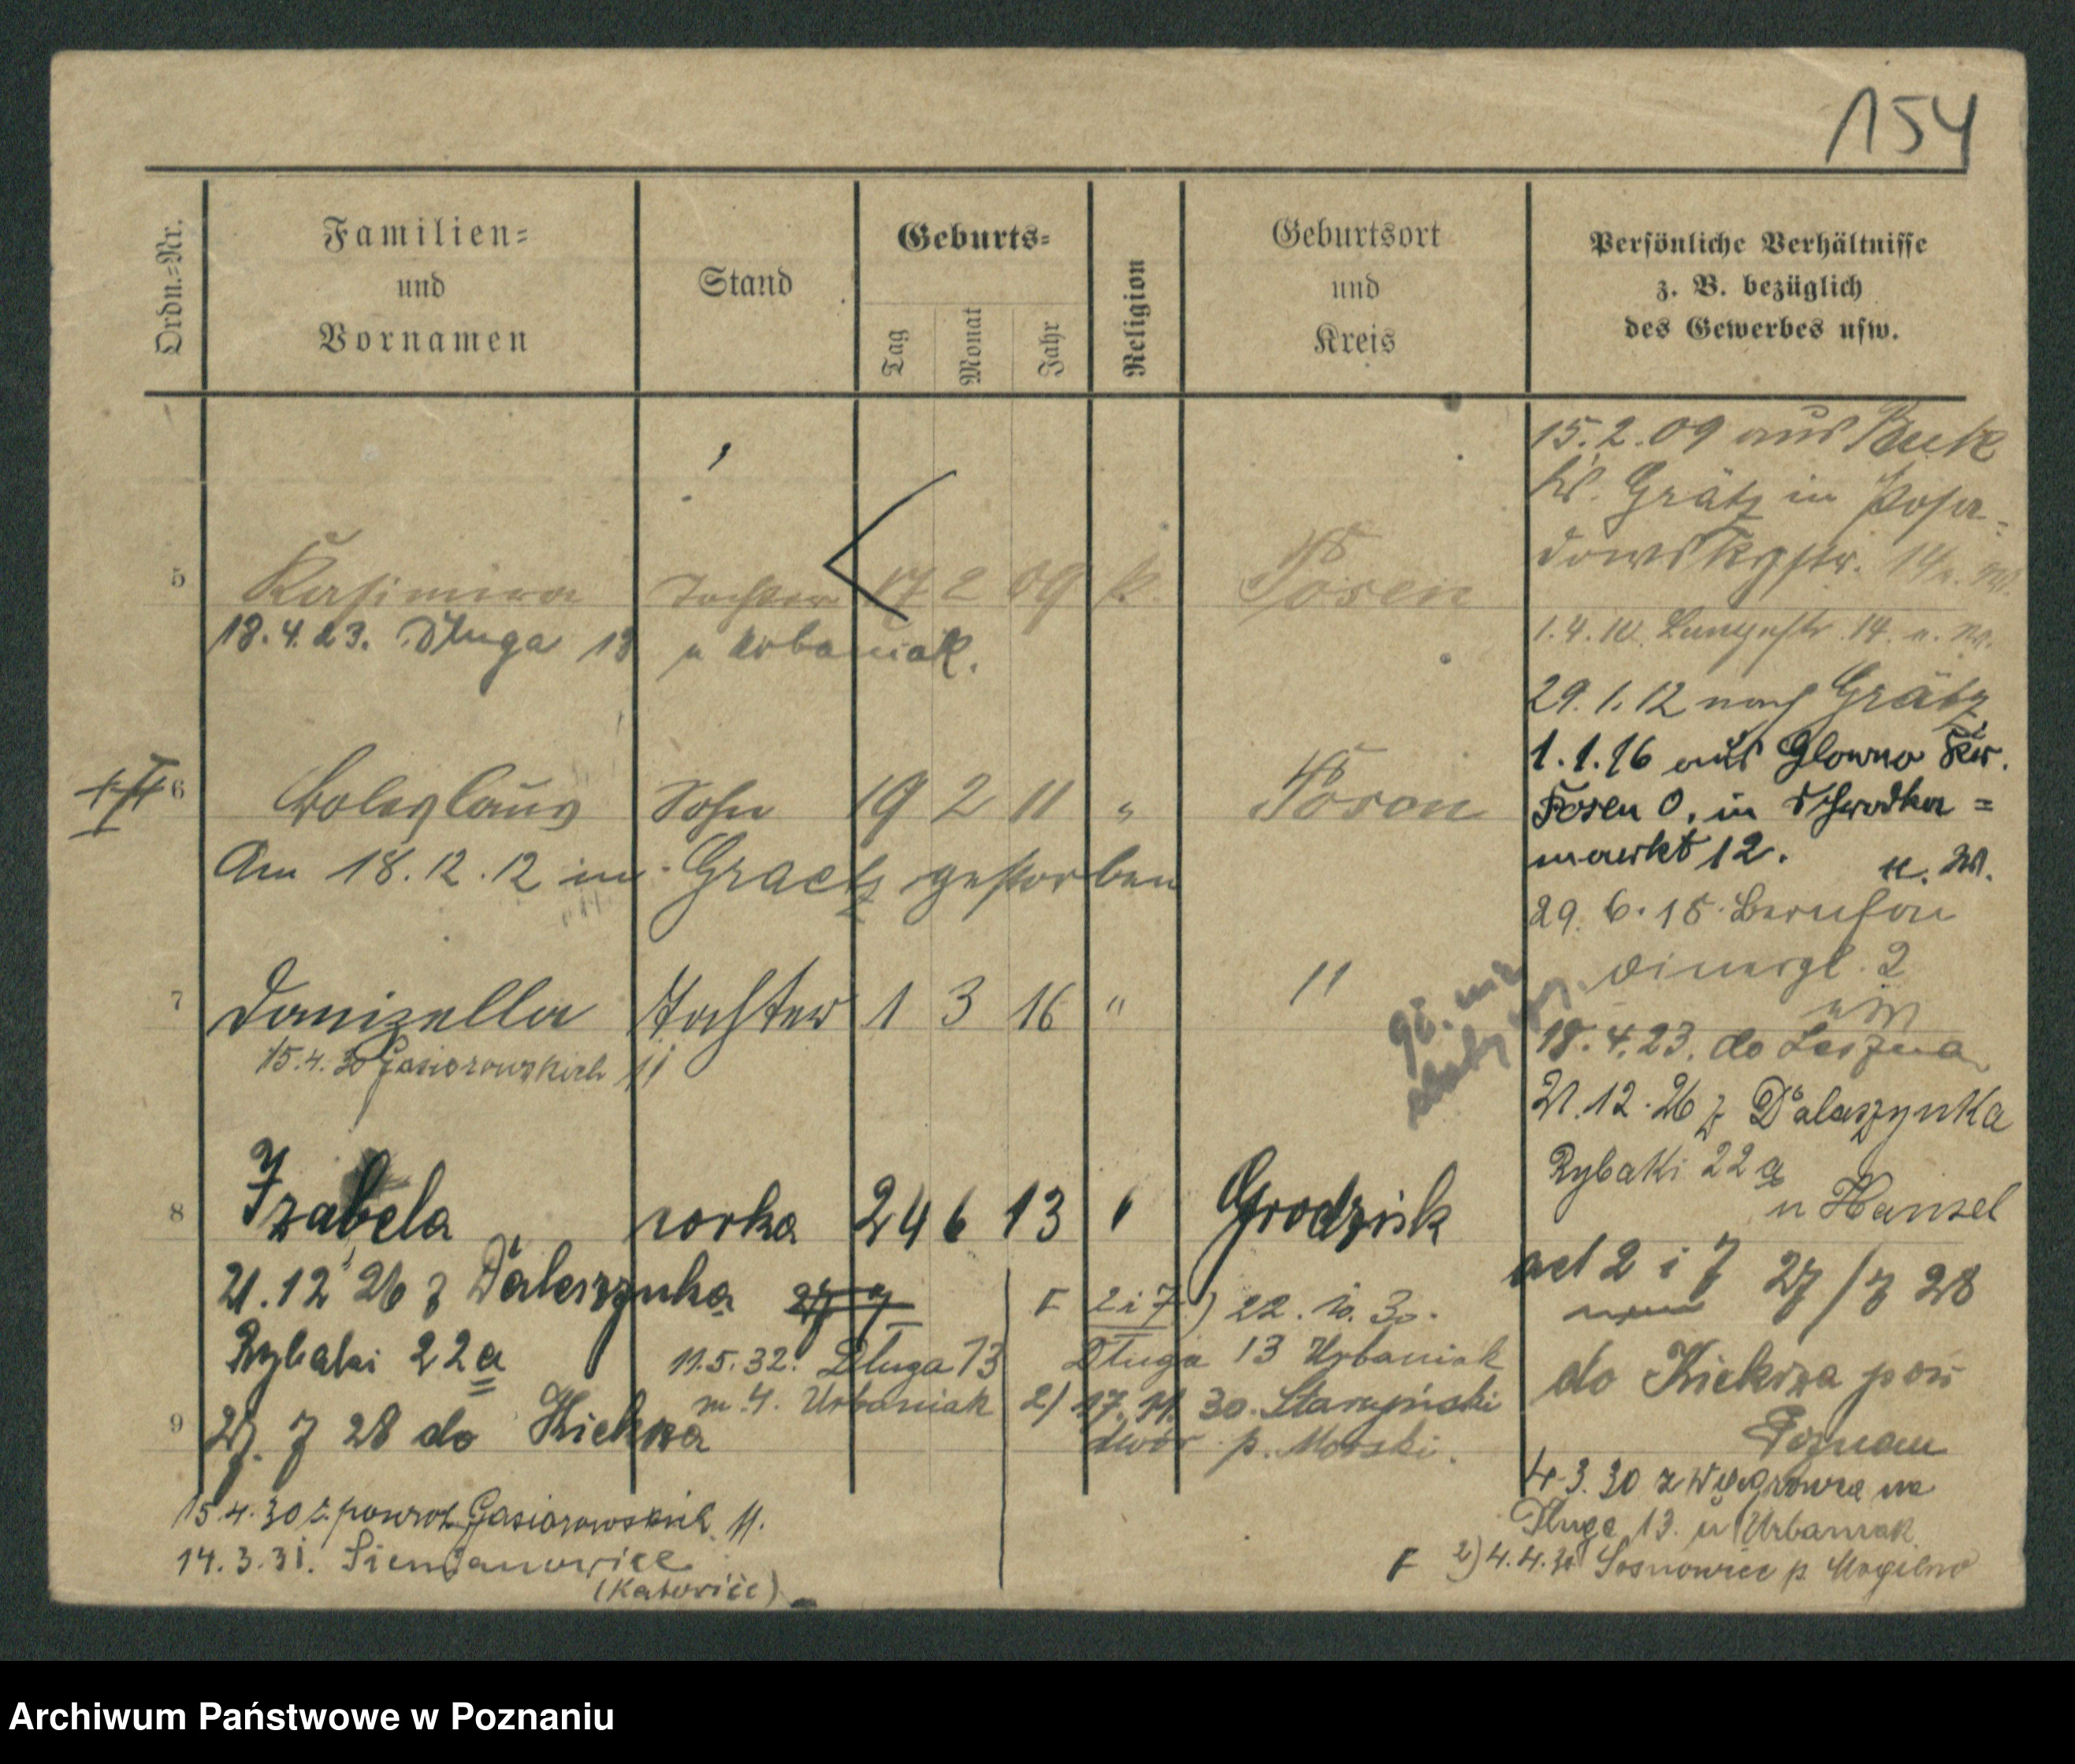 154
Ordn.=Nr.
Familien=
und
Vornamen
Stand
Geburts=
Tag
Monat
Jahr
Religion
Geburtsort
und
Kreis
Persönliche Verhältnisse
z. B. bezüglich
des Gewerbes usw.
15.2.09 aus Buk
Kr. Grätz in Posa=
dowskystr.
5 Kasimira Tochter 17 2 09 k. Posen
18.4.23. Długa 13 u Urbaniak.
1.4.10. Langestr. 14. u. W.
29.1.12 nach Grätz
1.1.16 aus Glowno Kr.
Posen O. in Schrodka=
markt 12. u. W.
6 Boleslaus Sohn 19 2 11 " Posen
Am 18.12.12 in Graetz gestorben
29.6.18.
2
7 Tochter 1 3 16 " "
15.4.30 Gąsiorowskich 11
18.4.23. do Leszna
21.12.26 z Dalaszynka
Rybaki 22a
u Hansel
8 Izabela corka 24 6 13 " Grodzisk
21.12 26 z Daleszynka 27 7
Rybaki 22a
9 27. 7 28 do Kiekrza
11.5.32. Długa 13
m. 4. Urbaniak
F 2 i 7) 22. 10. 30.
Długa 13 Urbaniak
2) 17. 11. 30.
dwór p.
ad 2 i 7 27/7 28
do Kiekrza pow
Poznań
4.3.30 z Wągrowca na
Długa 13. u Urbaniak
F 2) 4.4.31 Sosnowiec p. Mogilno
15.4.30 z powrot. Gąsiorowskich 11.
14.3.31. Siemianowice
(Katowice)
Archiwum Państwowe w Poznaniu